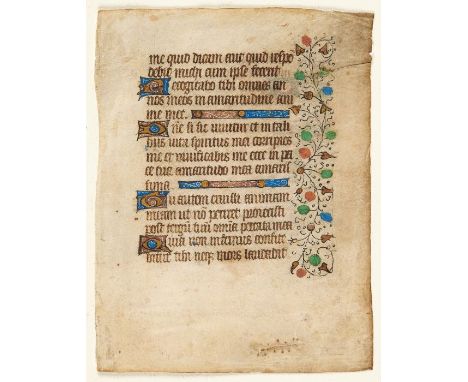 me quid dicam aut quid respo
debit michi cum ipse fecerit
Recogitabo tibi omnes an
nos meos in amaritudine ani
me mee
Dne si sic vivitur et in tali
bus vita spiritus mei corripies
me et vivificabis me ecce in pa
ce tue amaritudo mea amaris
sima
Tu autem eruisti animam
meam ut no periret proiecisti
post tergu tuu omia peccata mea
Quia non infernus confite
bitur tibi neqz mors laudabit